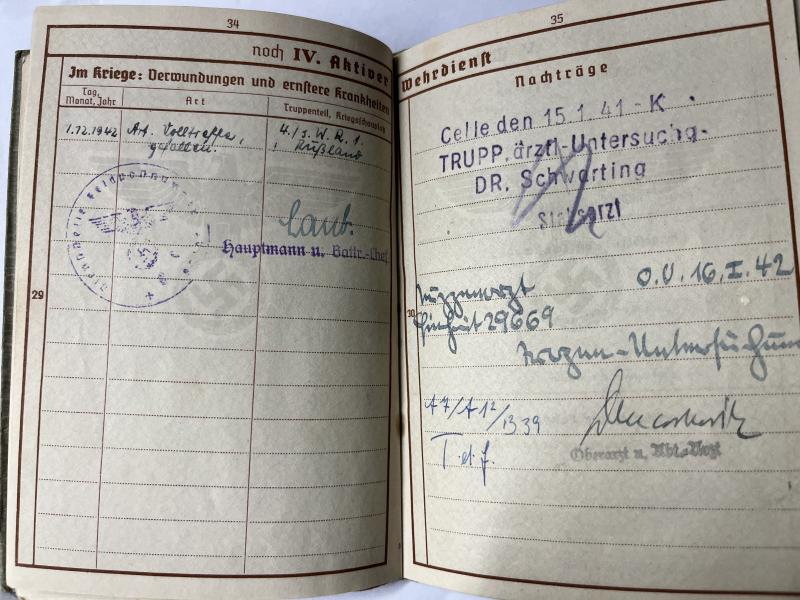 34
noch IV. Aktiver
Im Kriege: Verwundungen und ernstere Krankheiten
Tag, Monat, Jahr
Art
Truppenteil, Kriegsschauplatz
1.12.1942 Art. Volltreffer, 4./s.W.R.1.
gefallen. Rußland
Hauptmann u. Battr.-Chef
29
35
Wehrdienst
Nachträge
Celle den 15.1.41-K
TRUPP.ärztl-Untersuchg.
DR. Schwarting
Stabsarzt
O.U. 16.I.42
Truppenarzt
Einheit 29669
30
-Untersuchung
A7/A12/13 39
T.d.f.
Oberarzt u. Abt.-Arzt